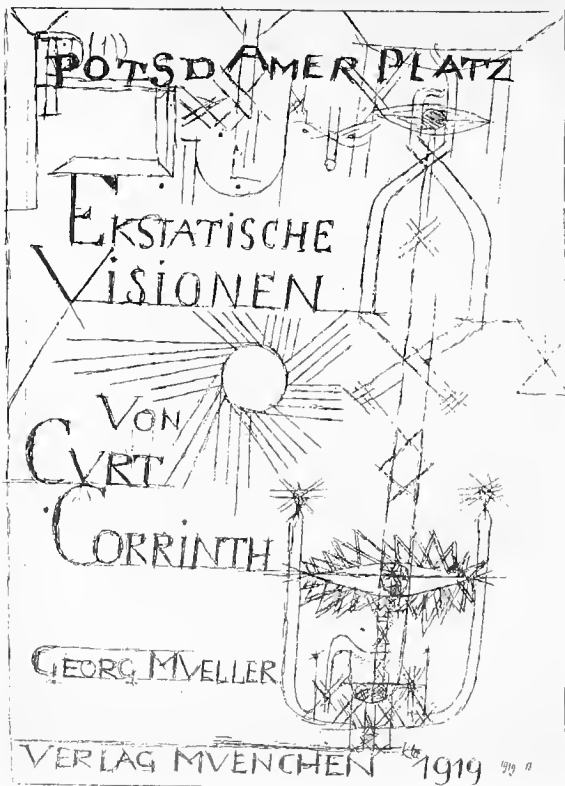 POTSDAMER PLATZ
EKSTATISCHE
VISIONEN
VON
CVRT
CORRINTH
GEORG MVELLER
VERLAG MVENCHEN 1919